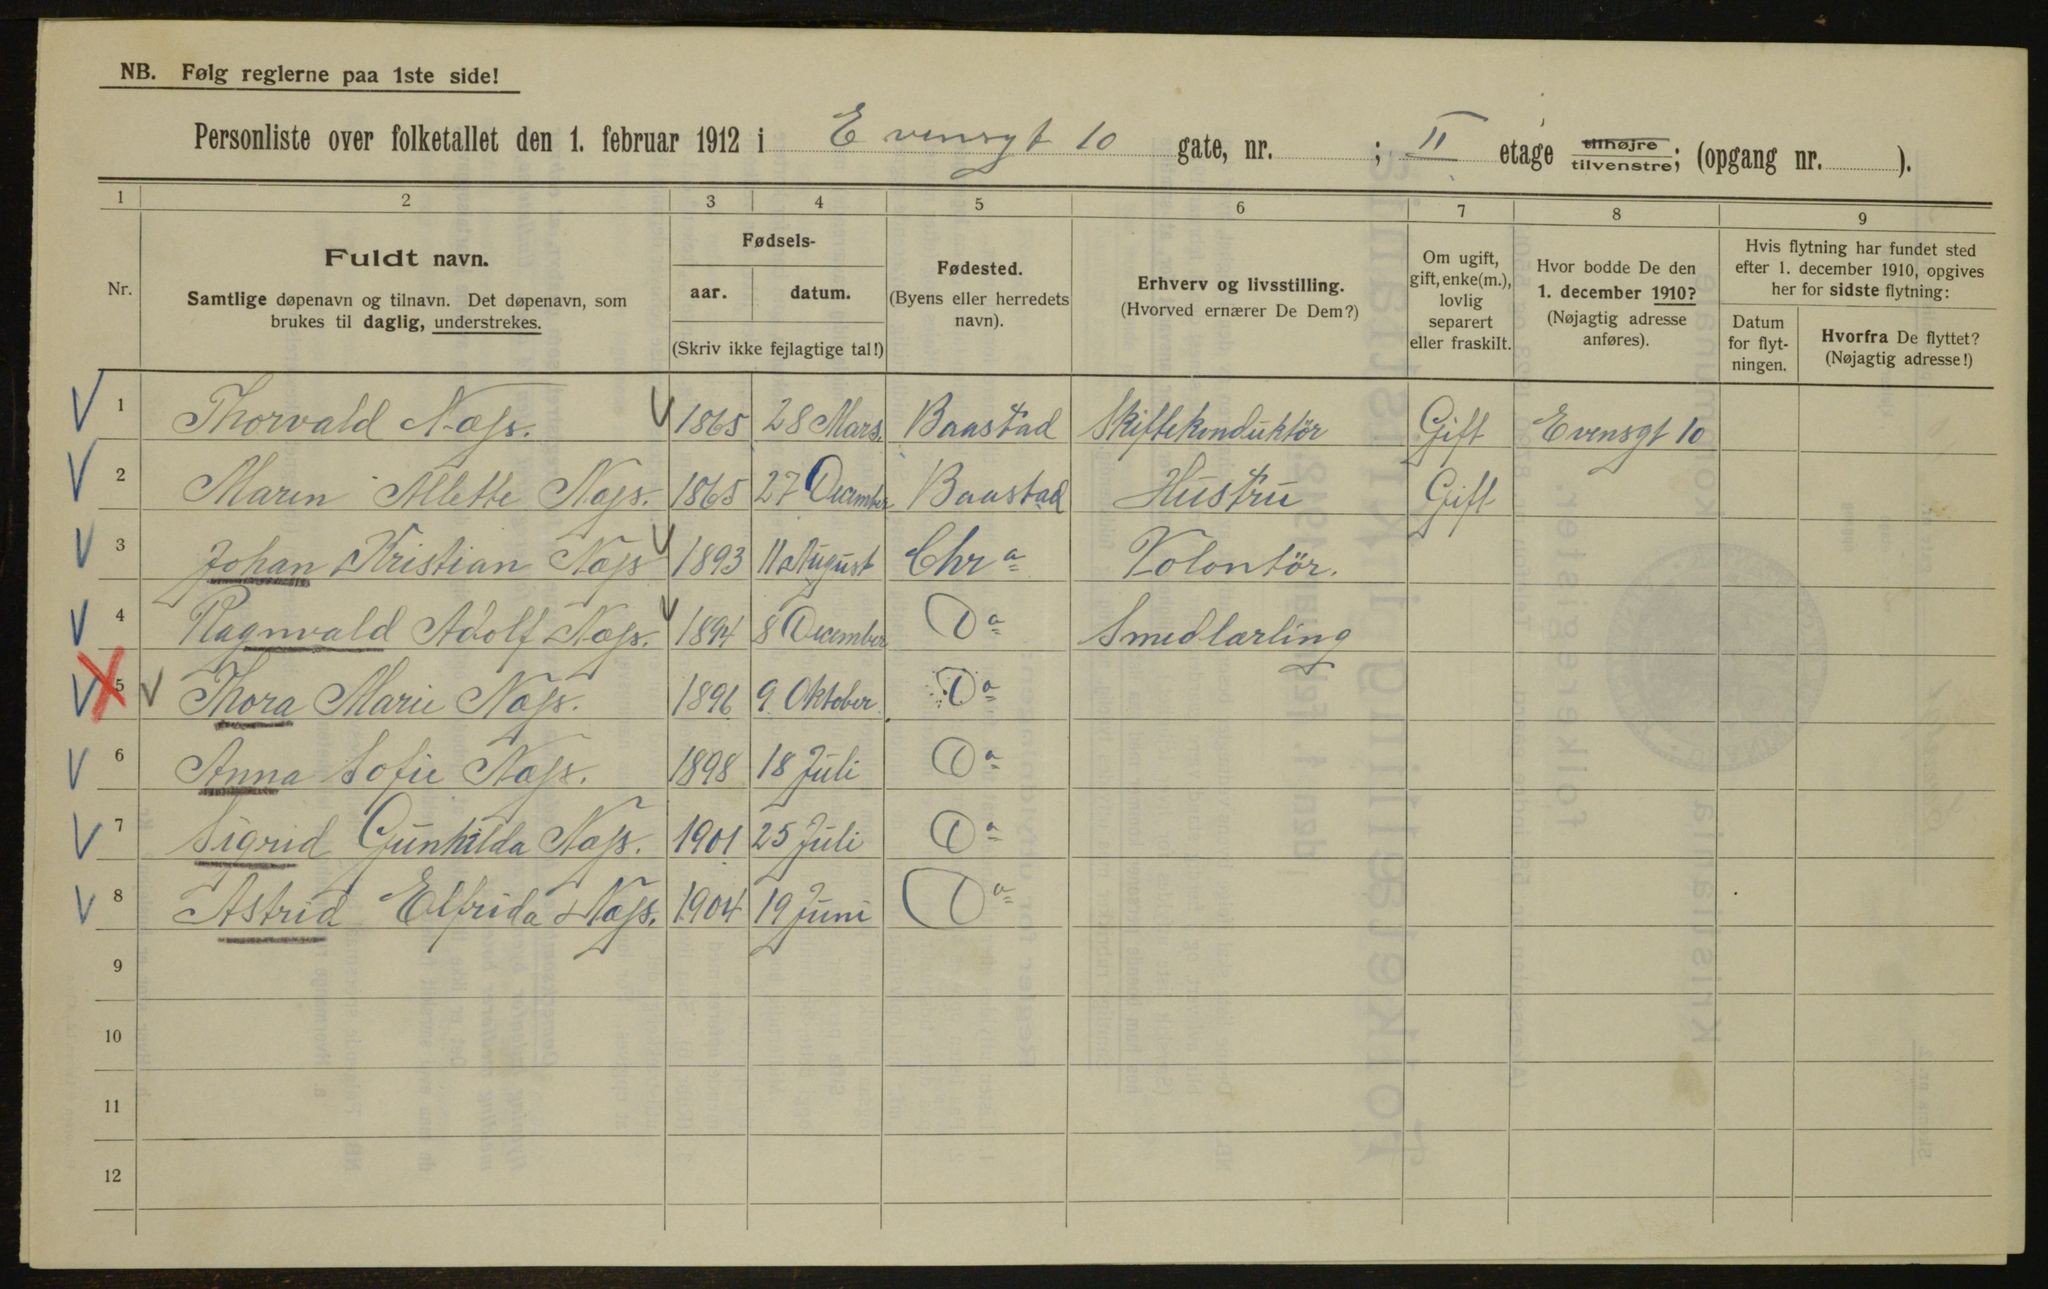 NB. Følg reglerne paa 1ste side!
Personliste over folketallet den 1. februar 1912 i Evensgt 10 gate, nr. ; II etage tilhøjre tilvenstre; (opgang nr. ).
1 2 3 4 5 6 7 8 9
Nr.
Fuldt navn.
Samtlige døpenavn og tilnavn. Det døpenavn, som
brukes til daglig, understrekes.
Fødsels-
aar. datum.
(Skriv ikke fejlagtige tal!)
Fødested.
(Byens eller herredets
navn).
Erhverv og livsstilling.
(Hvorved ernærer De Dem?)
Om ugift,
gift, enke(m.),
lovlig
separert
eller fraskilt.
Hvor bodde De den
1. december 1910?
(Nøjagtig adresse
anføres).
Hvis flytning har fundet sted
efter 1. december 1910, opgives
her for sidste flytning:
Datum
for flyt-
ningen.
Hvorfra De flyttet?
(Nøjagtig adresse!)
1 Thorvald Næss. 1865 28 Mars. Baastad Skiftekonduktör Gift Evensgt 10
2 Maren Allette Næss. 1865 27 December Baastad Hustru Gift
3 Johan Kristian Næss 1893 11 August Chra Volontör.
4 Ragnvald Adolf Næss. 1894 8 December Da Smedlærling
5 Thora Marie Næss. 1896 9 Oktober Da
6 Anna Sofie Næss. 1898 18 Juli Da
7 Sigrid Gunhilda Næss. 1901 25 Juli Da
8 Astrid Elfrida Næss. 1904 19 Juni Da
9
10
11
12